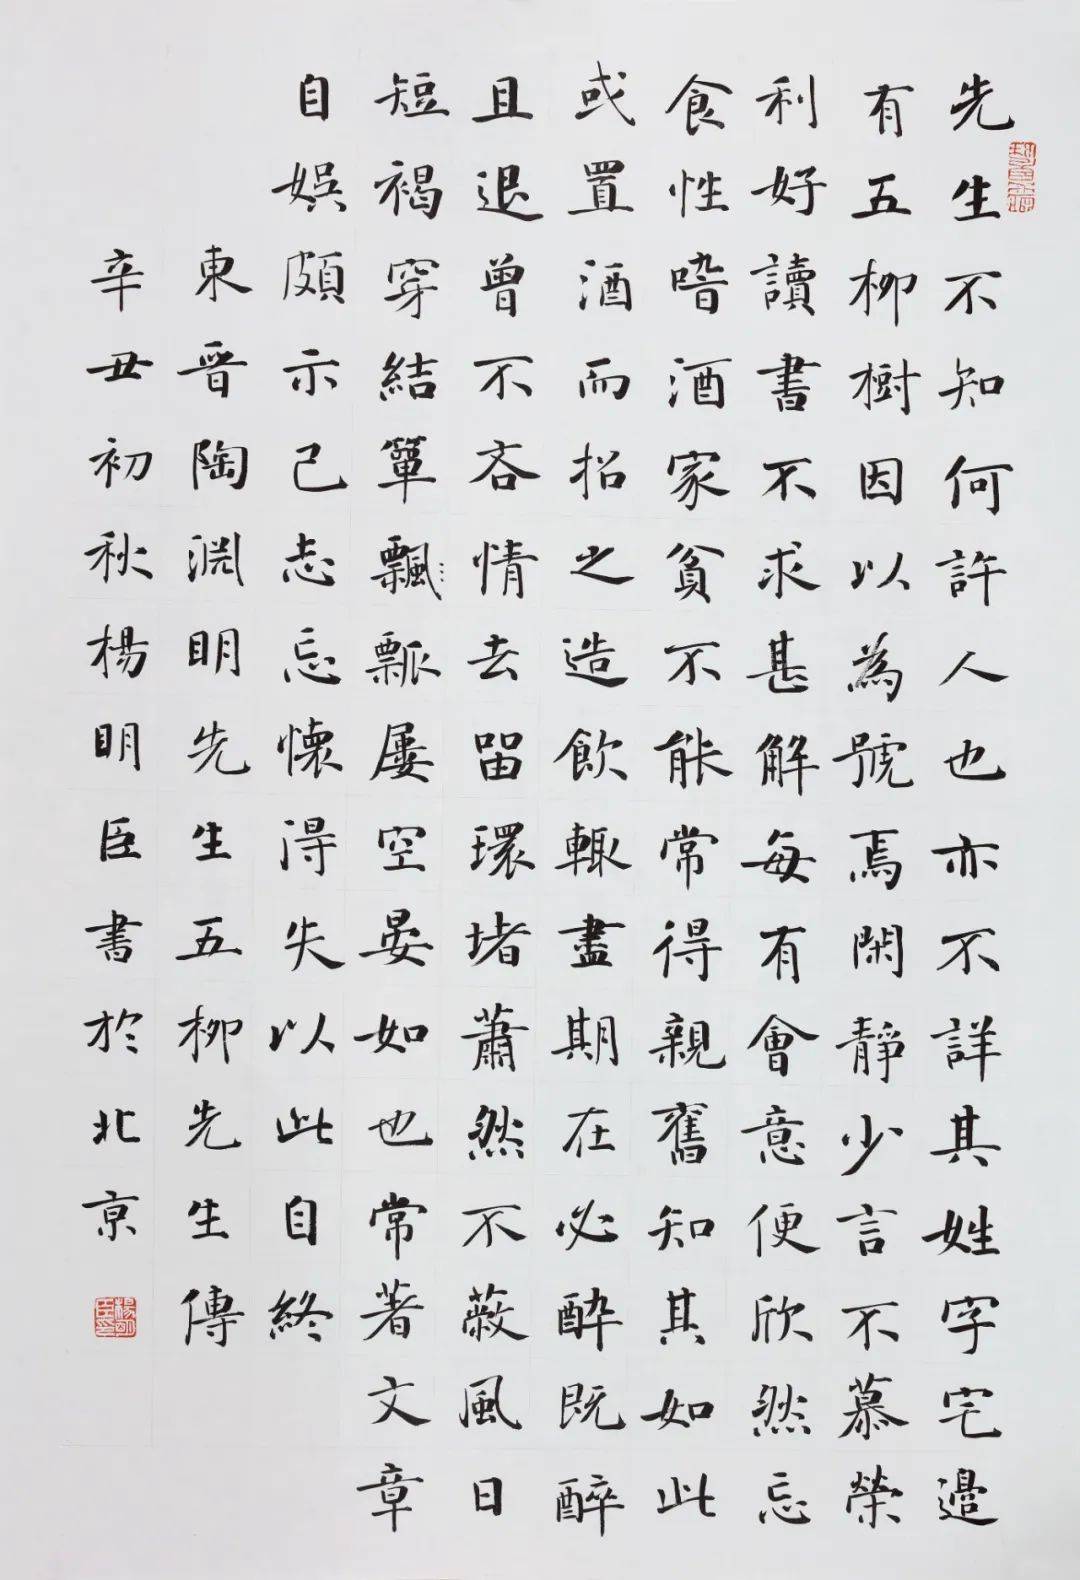 先生不知何許人也亦不詳其姓字宅邊
有五柳樹因以為號焉閑靜少言不慕榮
利好讀書不求甚解每有會意便欣然忘
食性嗜酒家貧不能常得親舊知其如此
或置酒而招之造飲輙盡期在必酔既醉
且退曾不吝情去留環堵蕭然不蔽風日
短褐穿結簞飄瓢屢空晏如也常著文章
自娛頗示己志忘懷得失以此自終
東晉陶淵眀先生五柳先生傳
辛丑初秋楊眀臣書於北京
楊明臣印